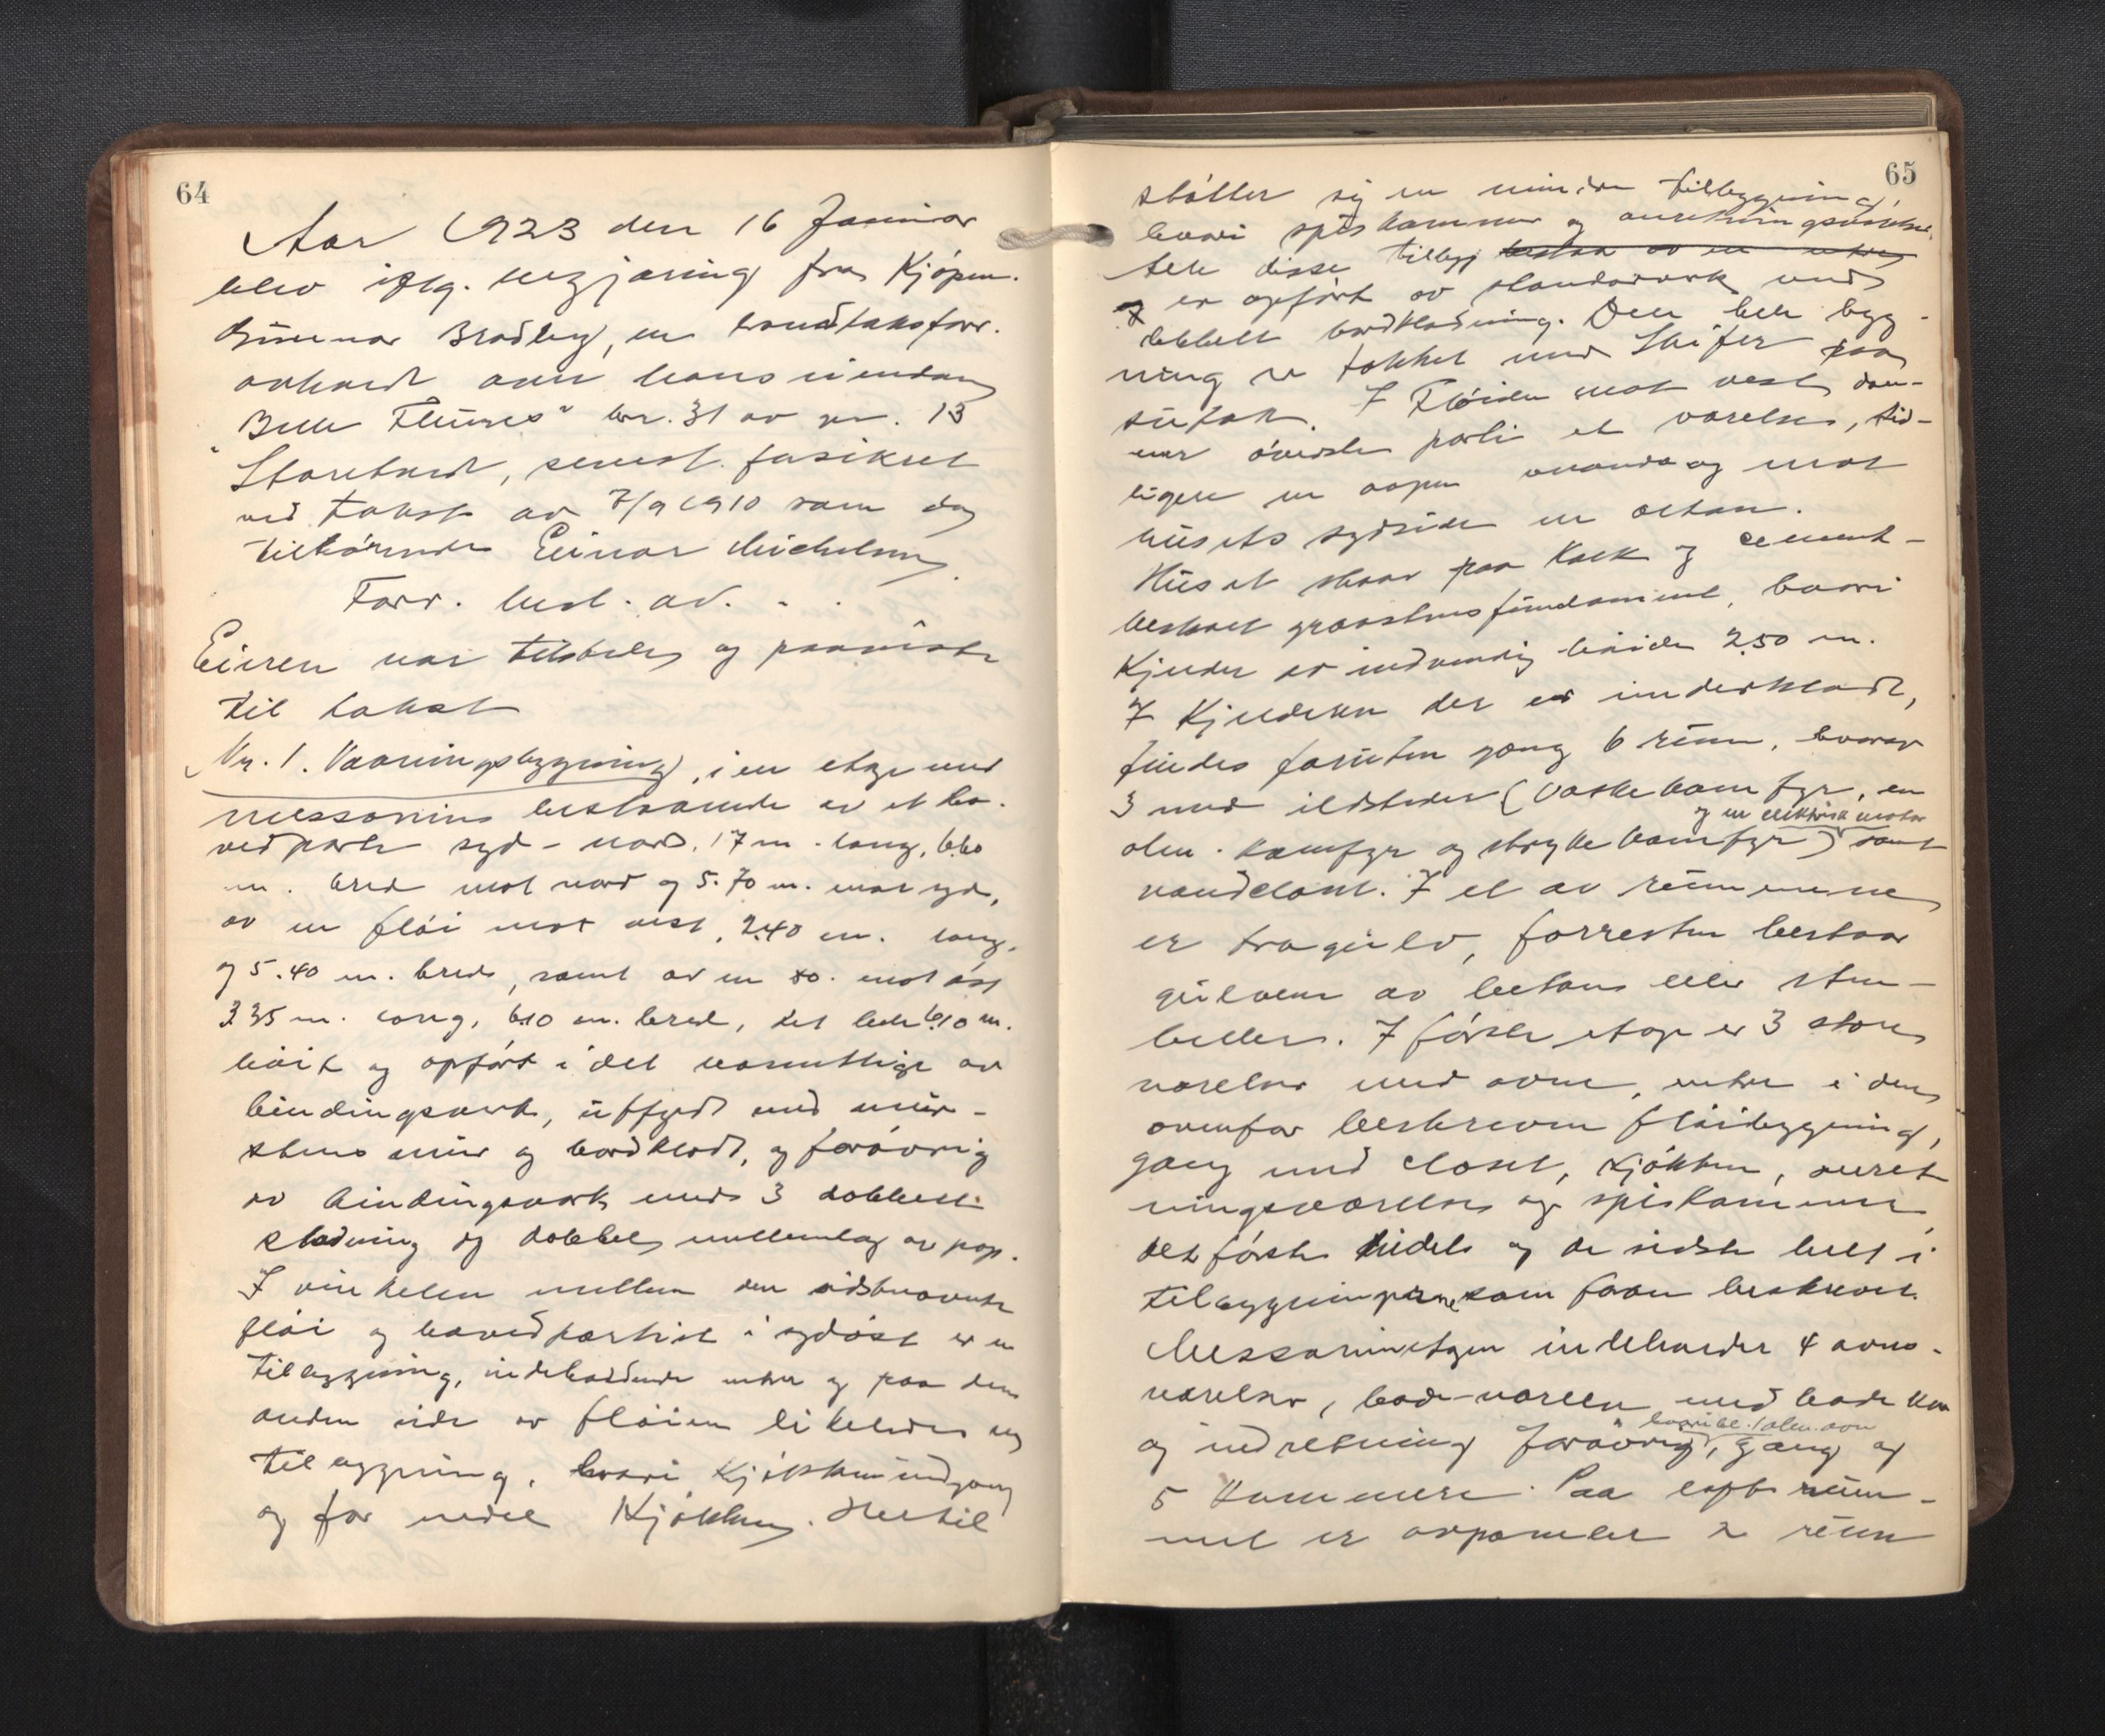 64
Aar 1923 den 16 Januar
blev iflg. begjæring fra Kjöpm.
Gunnar Bradbey, en brandtaksforr.
avholdt over hans eiendom
"Belle Fleures" bnr. 31 av gnr. 13
Storetveit, senest forsikret
ved takst av 7/9 1910 som da
tilhörende Einar Michelsen.
Forr. best. av. - .
Eieren var tilstede og paaviste
til takst
Nr. 1. Vaaningsbygning, i en etage med
messanin bestaaende av et ho-
vedparti syd - nord, 17 m. lang, 6.60
m. bred mot nord og 5.70 m. mot syd,
av en flöi mot vest, 2.40 m. lang,
og 5.40 m. bred, samt av en do. mot öst
3.35 m. lang, 6.10 m. bred, det hele 6.10 m.
höit og opfört i det vesentlige av
bindingsverk, utfyldt med mur-
stens mur og bordklædt, og forövrig
av bindingsverk med 3 dobbelt
klædning og dobbelt mellemlag av pap.
I vinkelen mellem den sidstnævnte
flöi og hovedpartiet i sydöst er en
tilbygning, indeholdende entre og paa den
anden side av flöien likeledes en
tilbygning, hvori Kjökkenindgang
og for en del Kjökken. Hertil
65
stötter sig en mindre tilbygning,
hvori spiskammer og anretningsværelse.
Alle disse tilbygg bestaa av en entre
er opfört av standerverk med
dobbelt bordklædning. Den hele byg-
ning er tækket med Skifer paa
sutak. I Flöiden mot vest dan-
ner överste parti et værelse, tid-
ligere en aapen veranda og mot
husets sydside en altan.
Huset staar paa Kalk og cement-
beslaat graastensfundament, hvori
Kjelder av indvendig höide 2.50 m.
I Kjelderen der er underklædt,
findes foruten gang 6 rum, hvorav
3 med ildsteder (vaskekomfyr, en
og en elektrisk motor
alm. Komfyr og strykekomfyr) samt
vandclosset. I et av rummene
er trægulv, forresten bestaar
gulvene av betong eller sten-
heller. I förste etage er 3 store
værelser med ovne, entre i den
ovenfor beskrevne flöibygning,
gang med closet, Kjökken, anret
ningsværelse og spiskammer,
det förste tildels og de sidste helt i
tilbygningerne som foran beskrevet.
Messaninetagen indeholder 4 ovns-
værelser, bade-værelse med badekar
hvoribl. 1 alm. ovn
og indretning forövrig, gang og
5 Kammere. Paa loftsrum-
met er avpanelet 2 rum